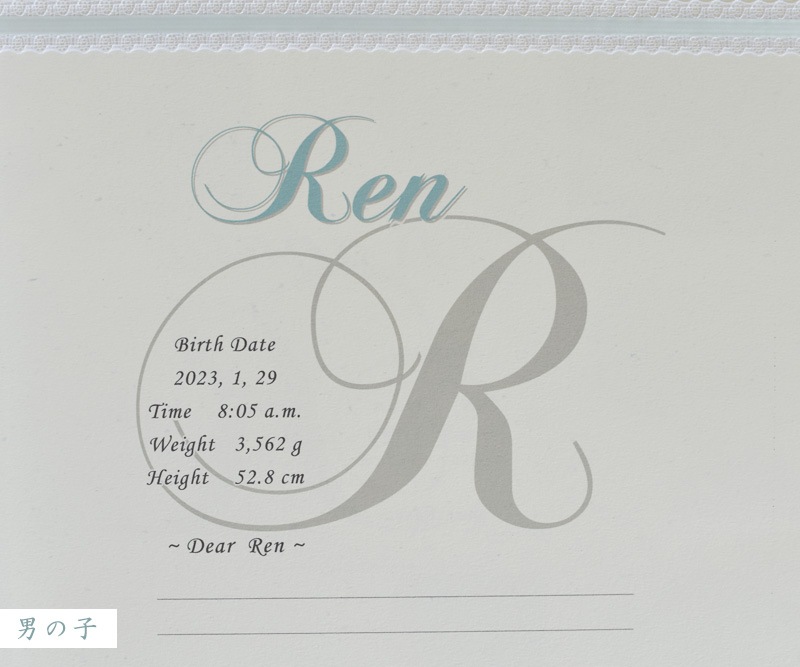 Ren
R
Birth Date
2023, 1, 29
Time 8:05 a.m.
Weight 3,562 g
Height 52.8 cm
~ Dear Ren ~
男の子